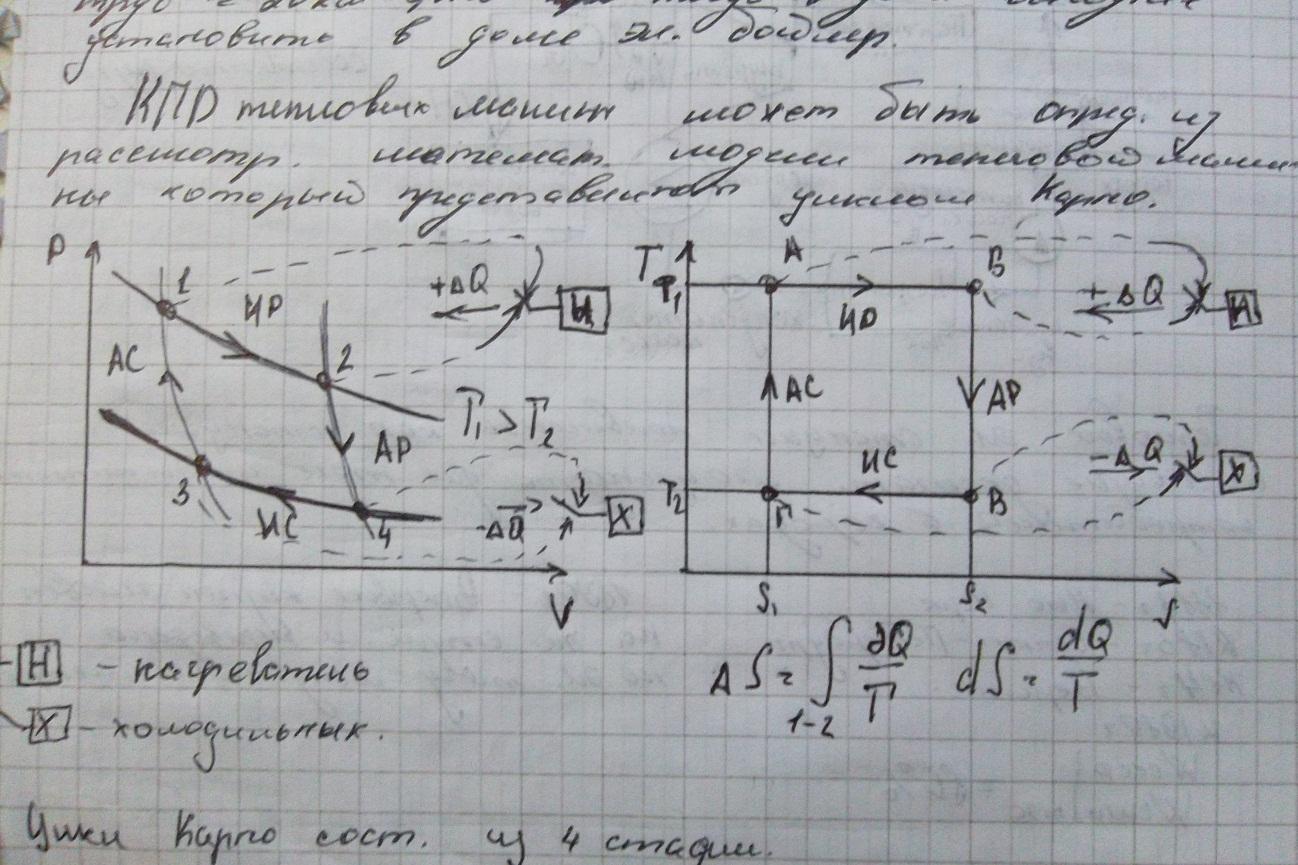 установить в доме эл. бойлер.
КПД тепловых машин может быть опред. из
рассмотр. математ. модели тепловой маши-
ны который представляет циклом Карно.
P
1
ИР
+ΔQ
Н
АС
2
T₁ > T₂
АР
3
ИС
4
-ΔQ
Х
V
T
T₁
А
Б
ИР
+ΔQ
Н
АС
АР
ИС
-ΔQ
Х
T₂
Г
В
S₁
S₂
S
Н - нагреватель
Х - холодильник.
ΔS = ∫ ∂Q/T dS = dQ/T
1-2
Цикл Карно сост. из 4 стадии.